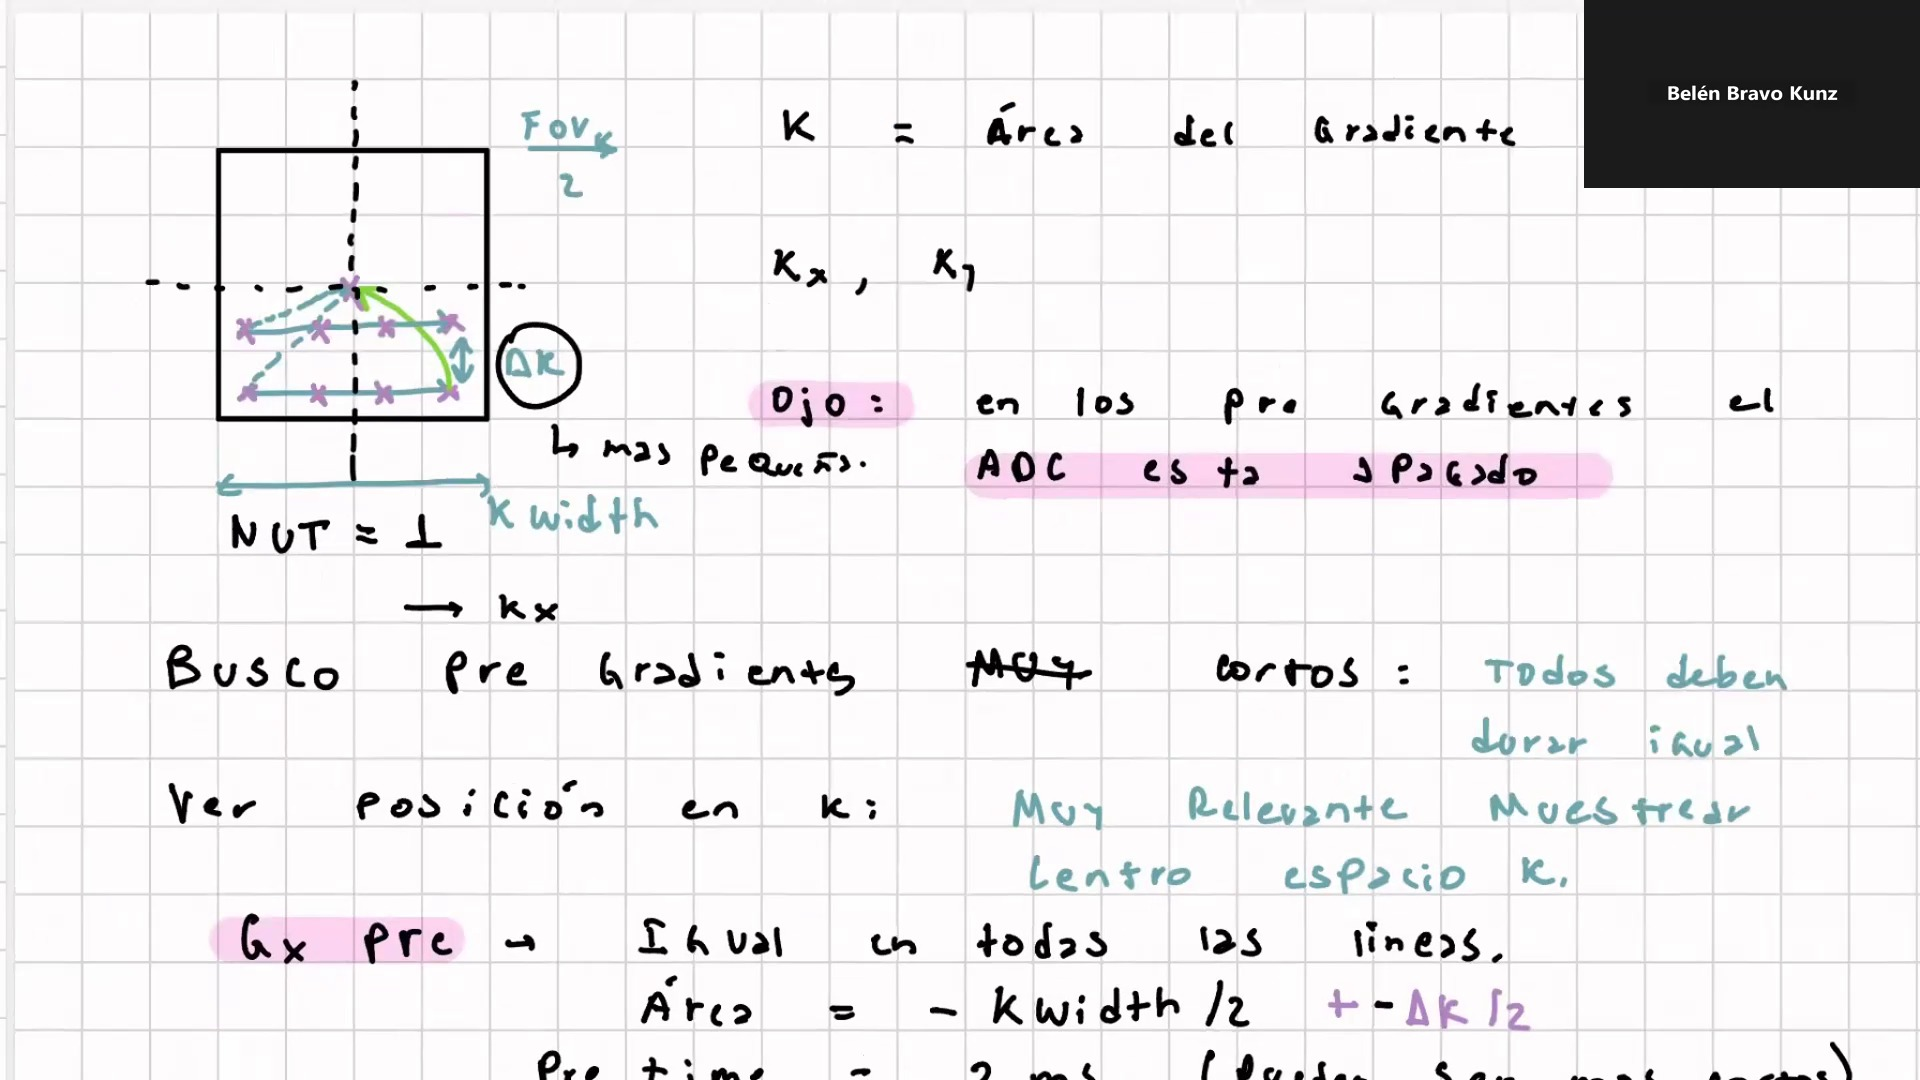 Belén Bravo Kunz
FOVk
2
K = Área del Gradiente
Kx, Ky
ΔK
↳ mas pequeño.
Ojo: en los pre Gradientes el
ADC esta apagado
K width
NUT = 1
→ kx
Busco pre Gradientes Muy cortos: Todos deben
durar igual
Ver posición en k: Muy Relevante Muestrear
Centro espacio K.
Gx pre → Igual en todas las lineas.
Área = - Kwidth/2 + - ΔK/2
Pre time = 2 ms (Pueden ser mas cortos)